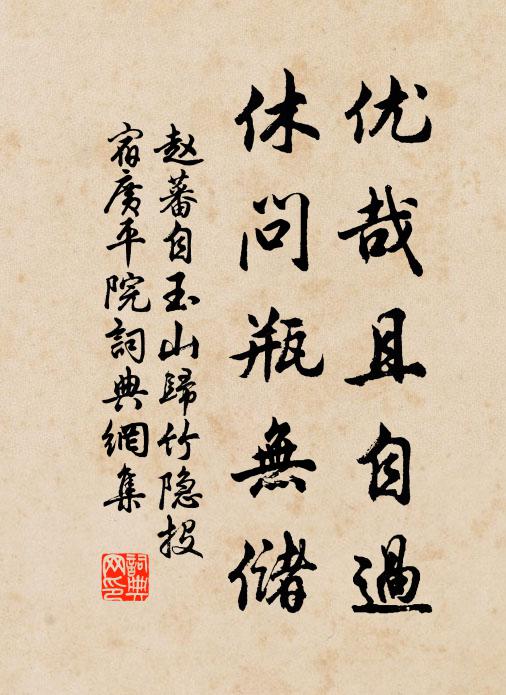 优哉且自過
休问瓶無儲
赵蕃自玉山歸竹隐投
宿廣平院詞典網集
詞典
网印